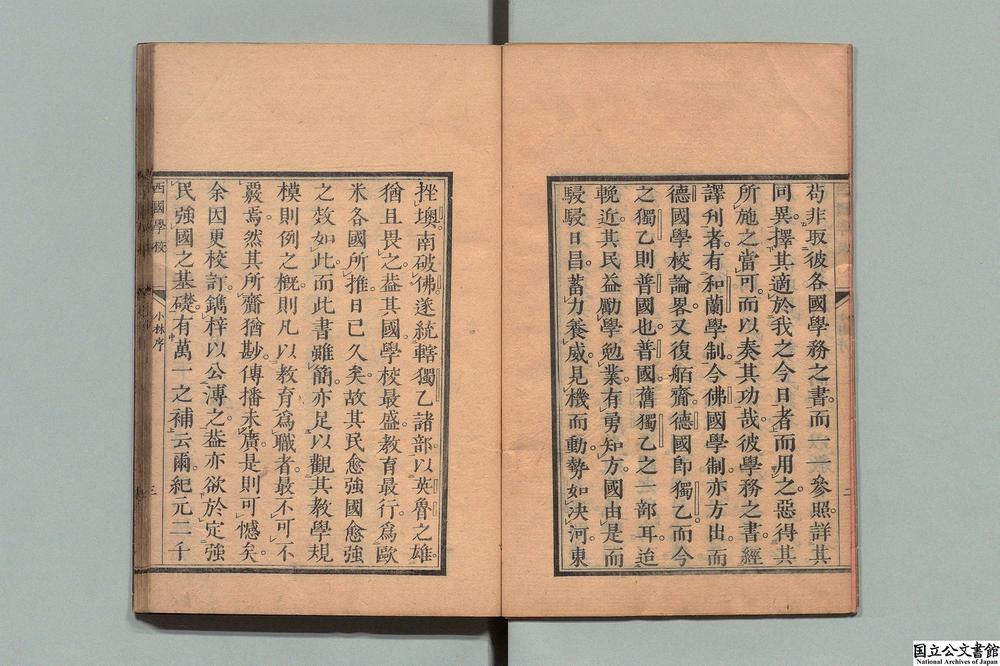 苟非取彼各國學務之書而一一參照詳其
同異擇其適於我之今日者而用之惡得其
所施之當可而以奏其功哉彼學務之書經
譯刊者有和蘭學制今佛國學制亦方出而
德國學校論畧又復舶齎德國卽獨乙而今
之獨乙則普國也普國舊獨乙之一部耳迨
輓近其民益勵學勉業有勇知方國由是而
駸駸日昌蓄力養威見機而動勢如决河東
二
挫墺南破佛遂統轄獨乙諸部以英魯之雄
猶且畏之葢其國學校最盛教育最行爲歐
米各國所推日已久矣故其民愈強國愈強
之效如此而此書雖簡亦足以觀其教學規
模則例之概則凡以教育爲職者最不可不
覈焉然其所齎猶尠傳播未廣是則可憾矣
余因更校訂鐫梓以公溥之葢亦欲於定強
民強國之基礎有萬一之補云爾紀元二千
西國學校
小林序
三
国立公文書館
National Archives of Japan